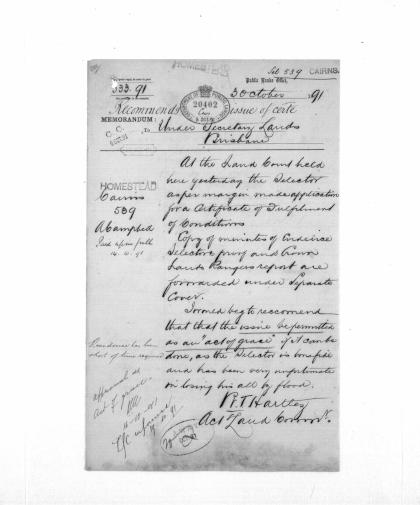 Sel 539 CAIRNS.
HOMESTEAD
Public Lands Office,
333.91
3 October 91
Recommends issue of certe
20402
MEMORANDUM:
To Under Secretary Lands
Brisbane
At the Land Court held
here yesterday the Selector
as per margin made application
for a Certificate of Fulfilment
of Conditions
HOMESTEAD
Cairns
539
A Campbell
Copy of minutes of Evidence
Selectors proof and Crown
Lands Rangers report are
forwarded under Separate
Cover.
I would beg to reccomend
that that the issue be permitted
as an "act of grace" if it can be
done, as the Selector is bonafide
and has been very unfortunate
in losing his all by flood.
Residence has been
short of time required
approved as
act of grace
R T Hartley
Act Land Commr.